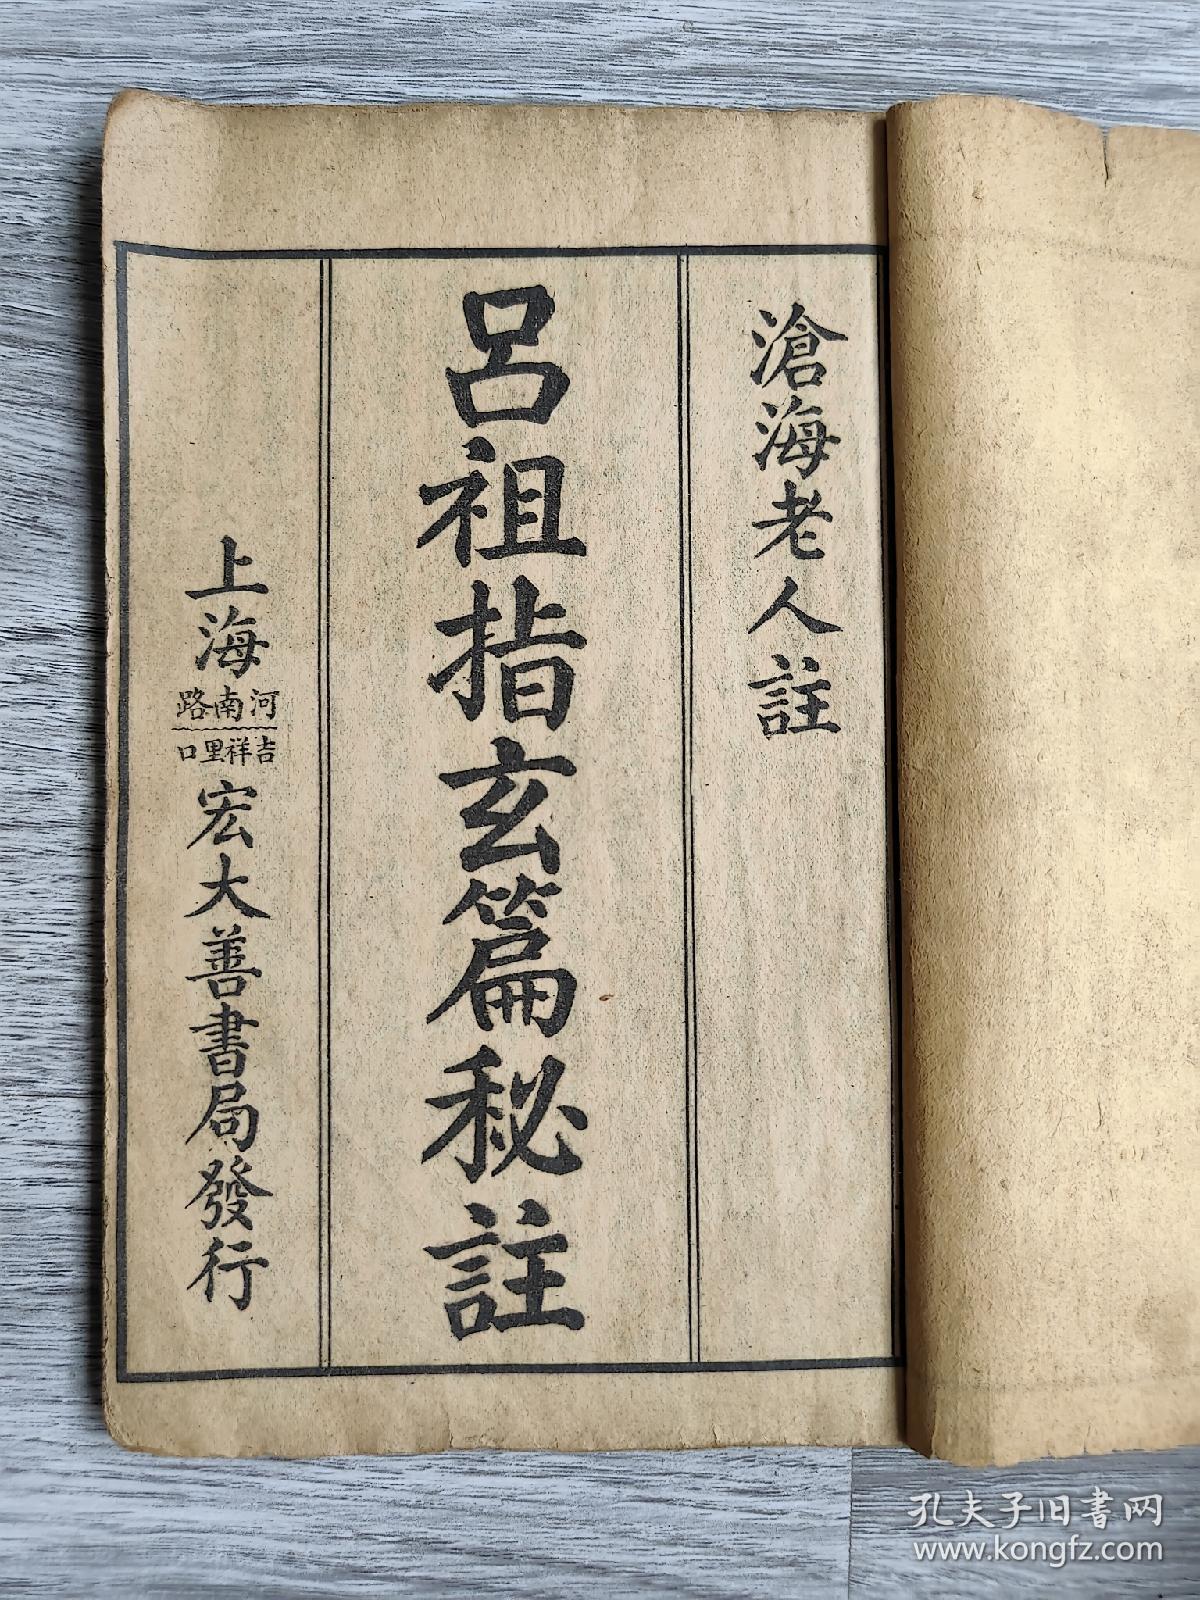 滄海老人註
呂祖指玄篇秘註
上海
河南路
吉祥里口
宏大善書局發行
孔夫子旧书网
www.kongfz.com